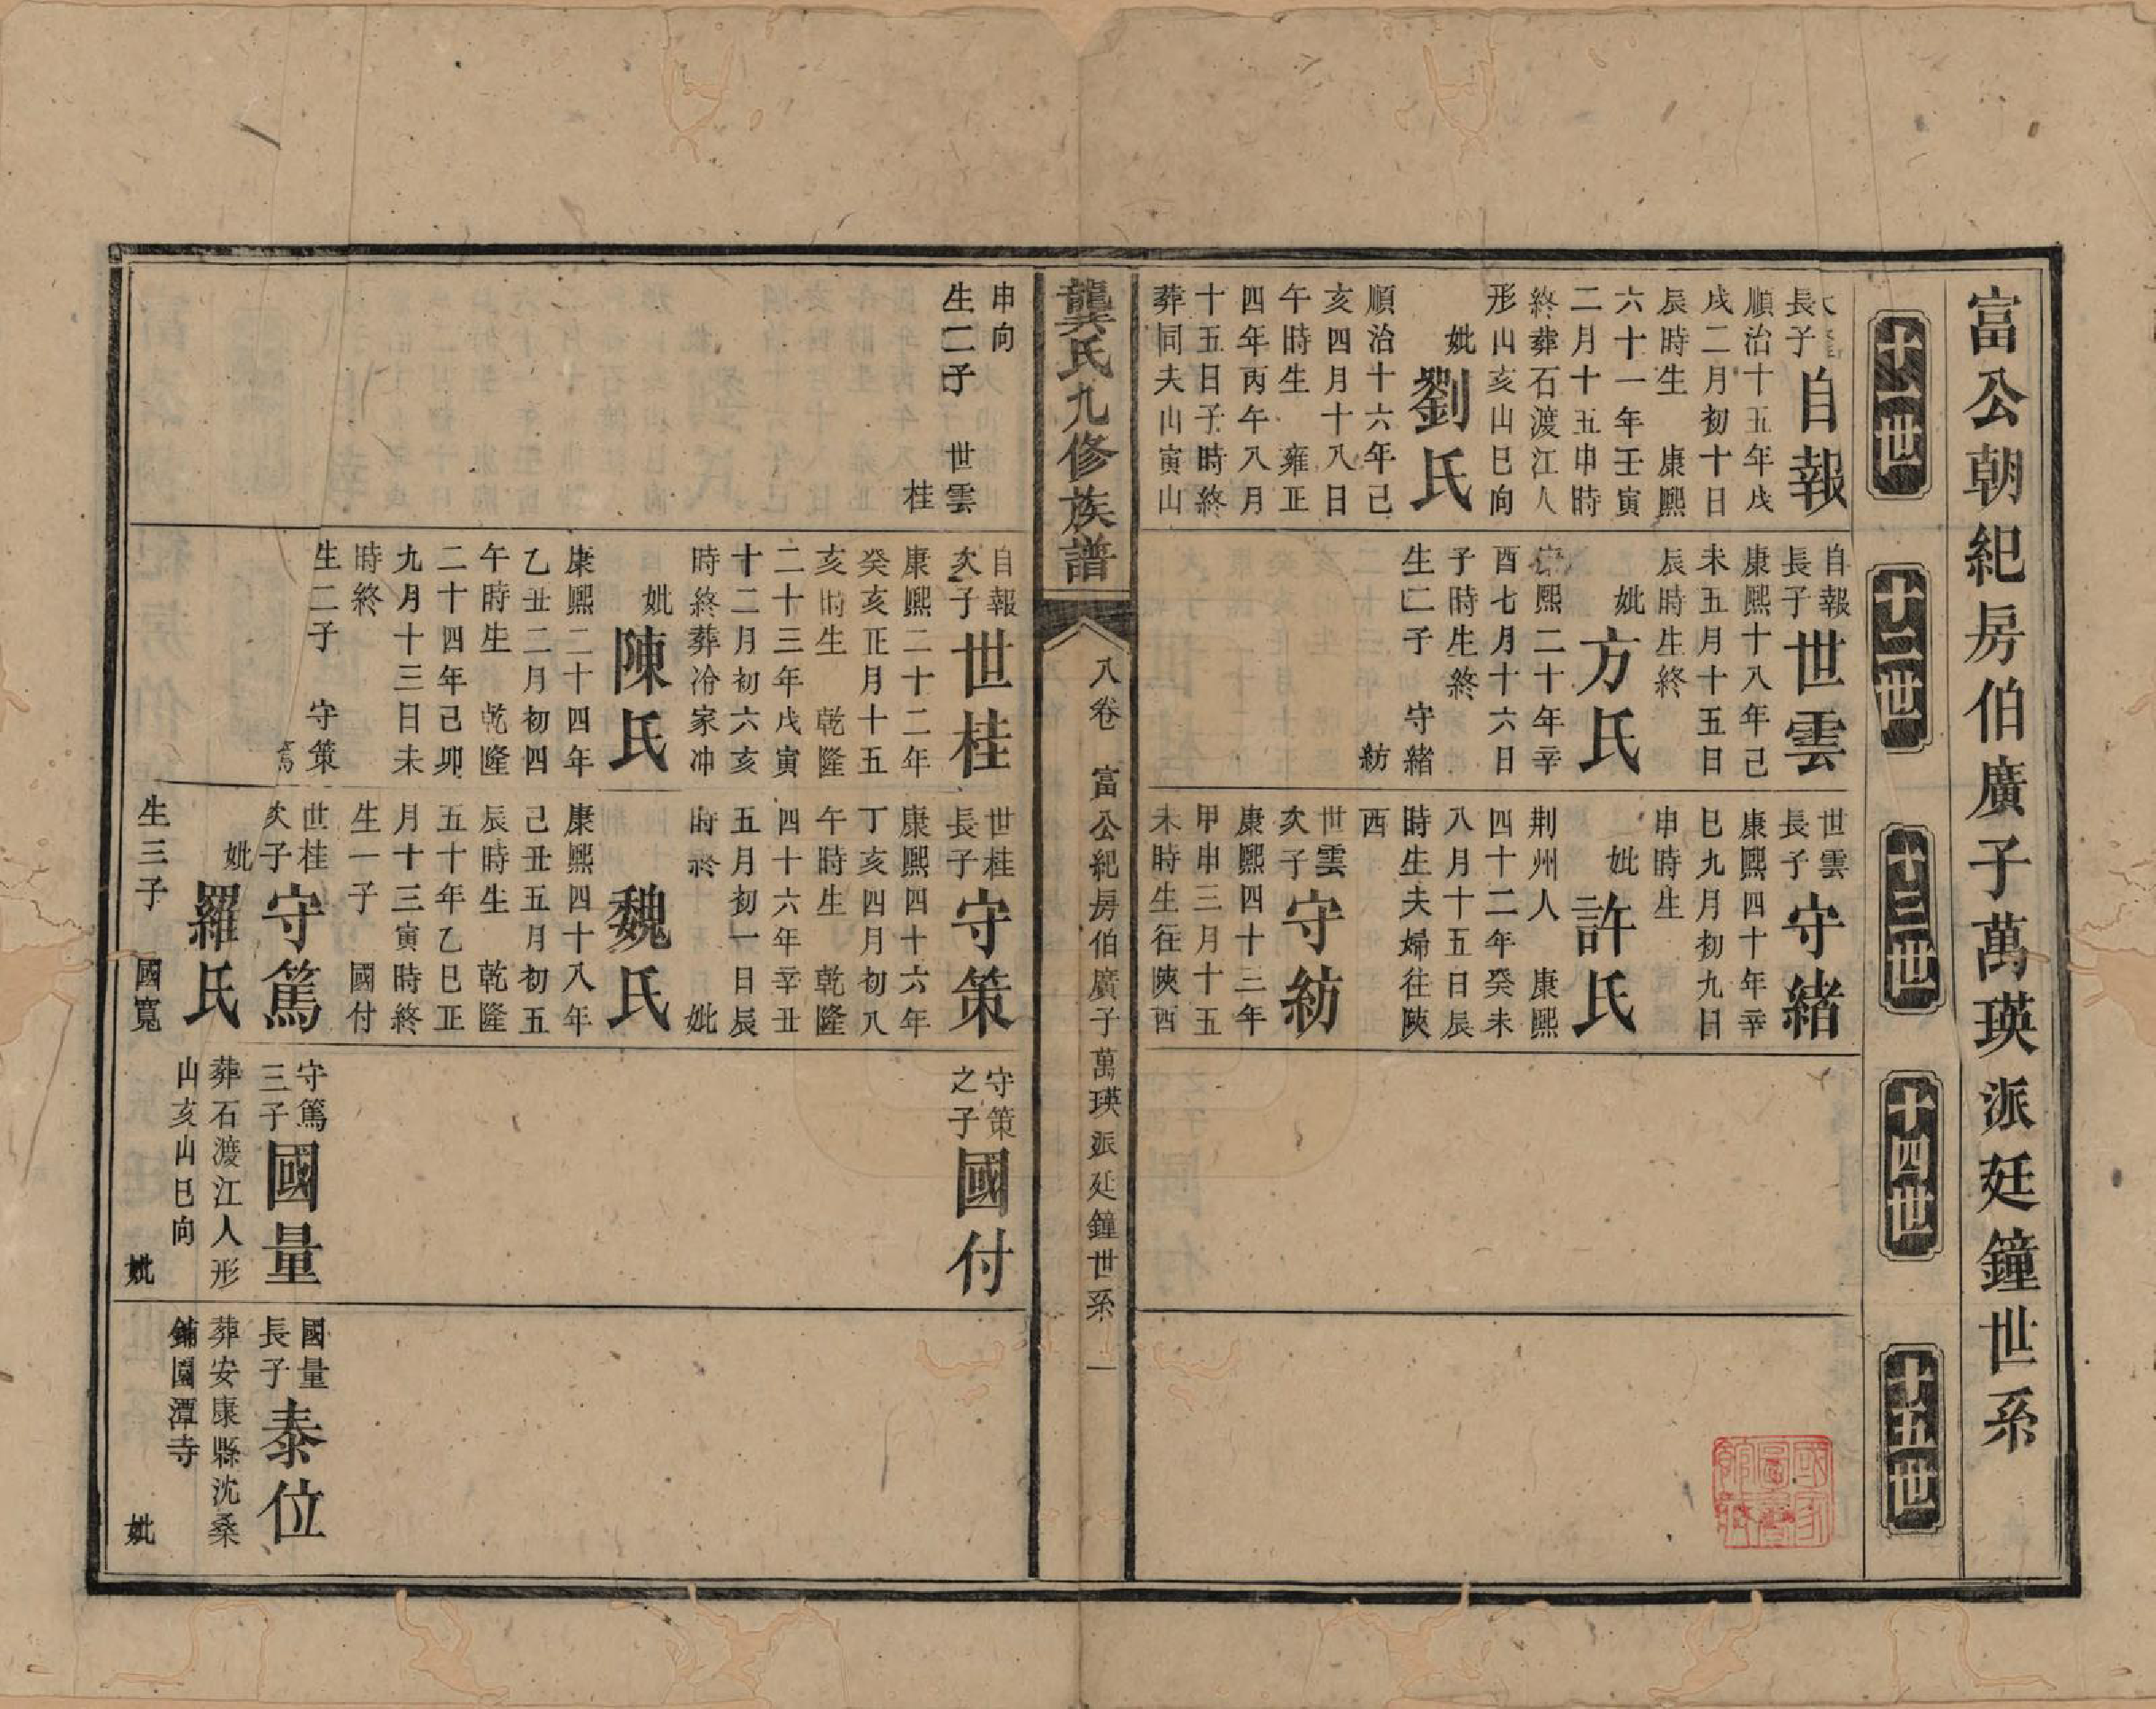 富公朝紀房伯廣子萬瑛派廷鐘世系
十一世
十二世
十三世
十四世
十五世
長子
自報
順治十五年戊
戌二月初十日
辰時生　康熙
六十一年壬寅
二月十五申時
終葬石渡江人
形山亥山巳向
妣
劉氏
順治十六年己
亥四月十八日
午時生　雍正
四年丙午八月
十五日子時終
葬同夫山寅山
自報
長子
世雲
康熙十八年己
未五月十五日
辰時生終
妣
方氏
康熙二十年辛
酉七月十六日
子時生終
生二子　守緒
紡
世雲
長子
守緒
康熙四十年辛
巳九月初九日
申時生
妣
許氏
荆州人　康熙
四十二年癸未
八月十五日辰
時生夫婦往陝
西
世雲
次子
守紡
康熙四十三年
甲申三月十五
未時生往陝西
龔氏九修族譜
八卷　富公紀房伯廣子萬瑛派廷鐘世系　一
申向
生二子　世雲
桂
自報
次子
世桂
康熙二十二年
癸亥正月十五
亥時生　乾隆
二十三年戊寅
十二月初六亥
時終葬冷家冲
妣
陳氏
康熙二十四年
乙丑二月初四
午時生　乾隆
二十四年己卯
九月十三日未
時終
生二子　守策
篤
世桂
長子
守策
康熙四十六年
丁亥四月初八
午時生　乾隆
四十六年辛丑
五月初一日辰
時終　妣
魏氏
康熙四十八年
己丑五月初五
辰時生　乾隆
五十年乙巳正
月十三寅時終
生一子　國付
世桂
次子
守篤
妣
羅氏
生三子　國寬
守策
之子
國付
守篤
三子
國量
葬石渡江人形
山亥山巳向
妣
國量
長子
泰位
葬安康縣沈桑
鋪園潭寺
妣